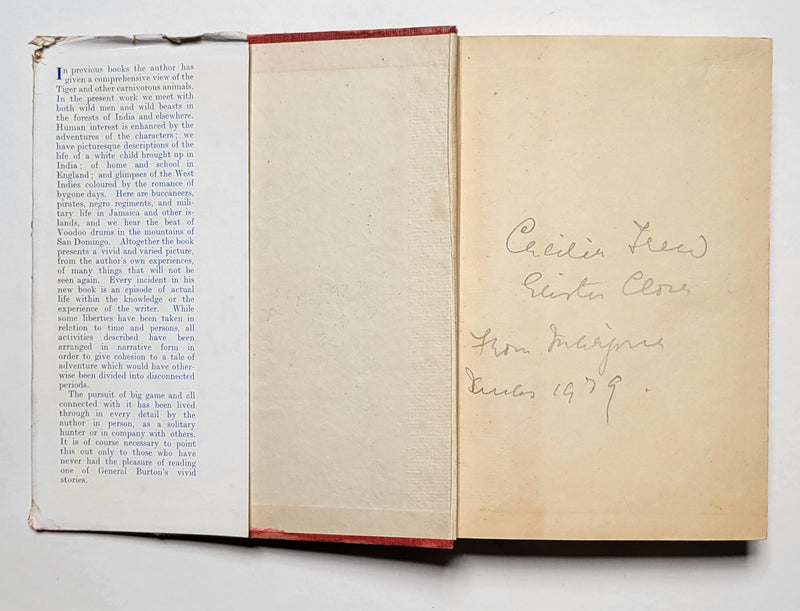 In previous books the author has
given a comprehensive view of the
Tiger and other carnivorous animals.
In the present work we meet with
both wild men and wild beasts in
the forests of India and elsewhere.
Human interest is enhanced by the
adventures of the characters; we
have picturesque descriptions of the
life of a white child brought up in
India; of home and school in
England; and glimpses of the West
Indies coloured by the romance of
bygone days. Here are buccaneers,
pirates, negro regiments, and mili-
tary life in Jamaica and other is-
lands, and we hear the beat of
Voodoo drums in the mountains of
San Domingo. Altogether the book
presents a vivid and varied picture,
from the author's own experiences,
of many things that will not be
seen again. Every incident in his
new book is an episode of actual
life within the knowledge or the
experience of the writer. While
some liberties have been taken in
relation to time and persons, all
activities described have been
arranged in narrative form in
order to give cohesion to a tale of
adventure which would have other-
wise been divided into disconnected
periods.
The pursuit of big game and all
connected with it has been lived
through in every detail by the
author in person, as a solitary
hunter or in company with others.
It is of course necessary to point
this out only to those who have
never had the pleasure of reading
one of General Burton's vivid
stories.
Cecilia Trew
From
1979.